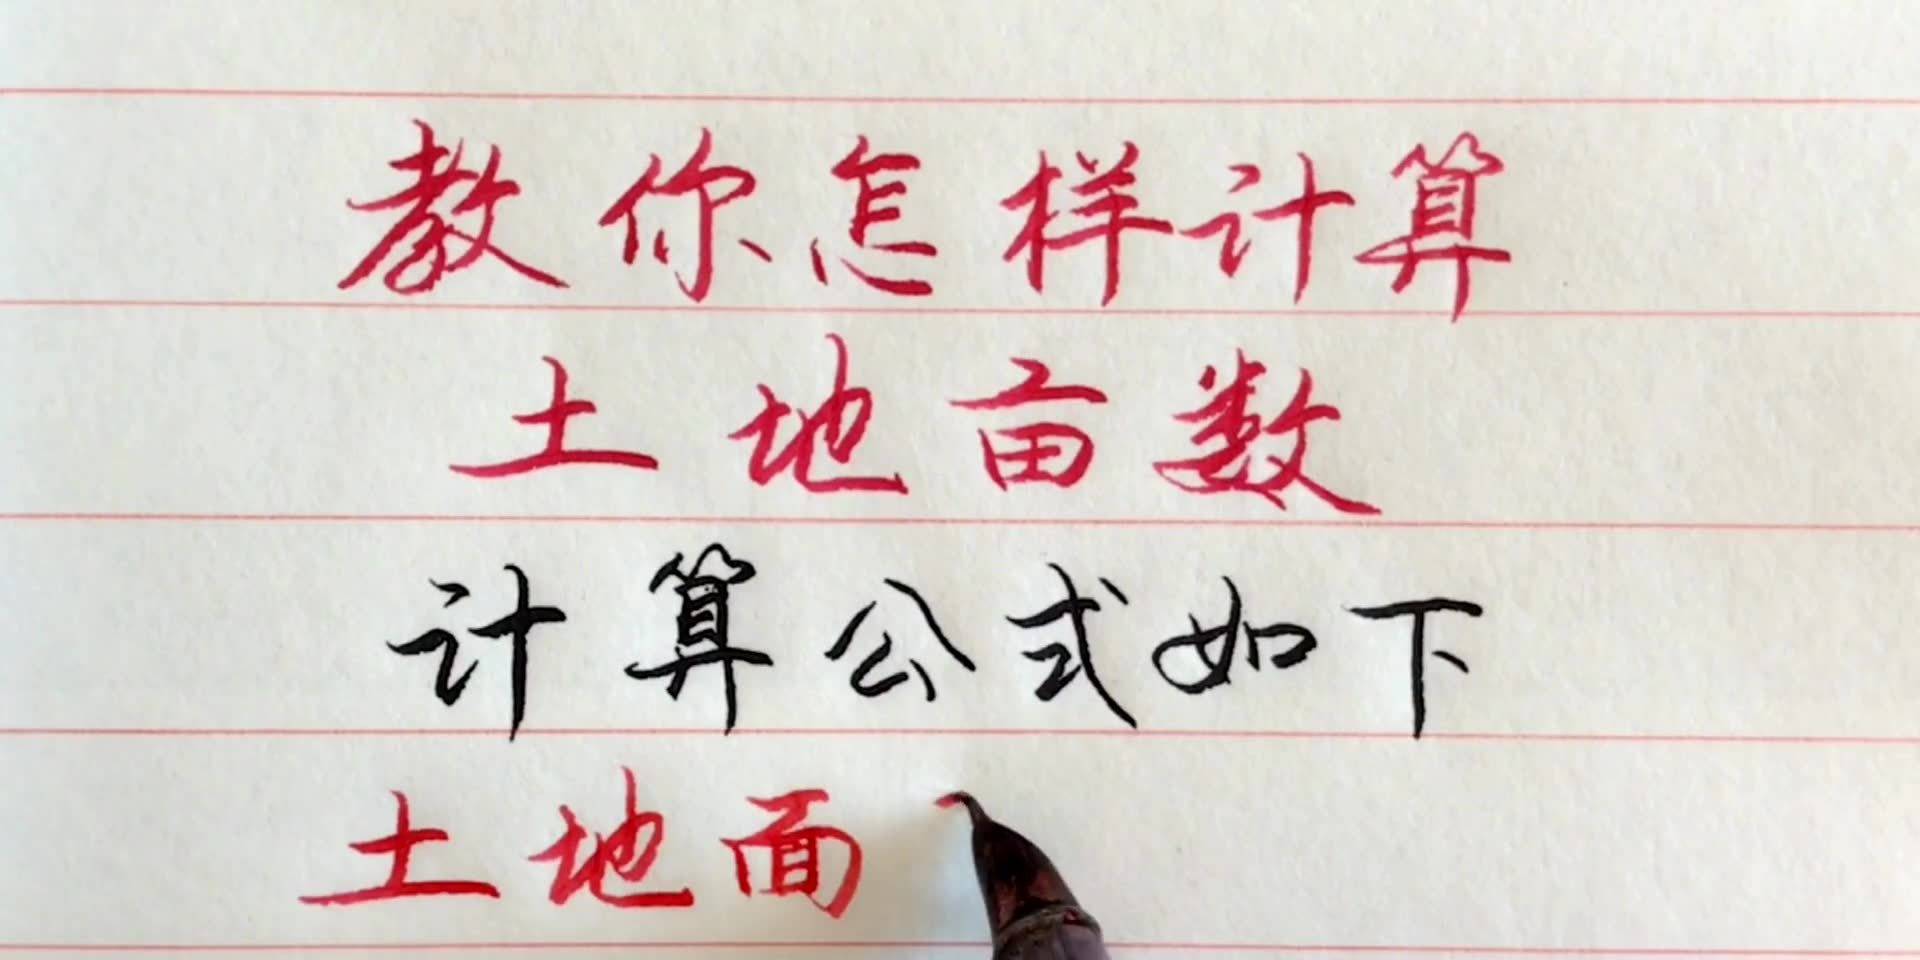 教你怎样计算
土地亩数
计算公式如下
土地面